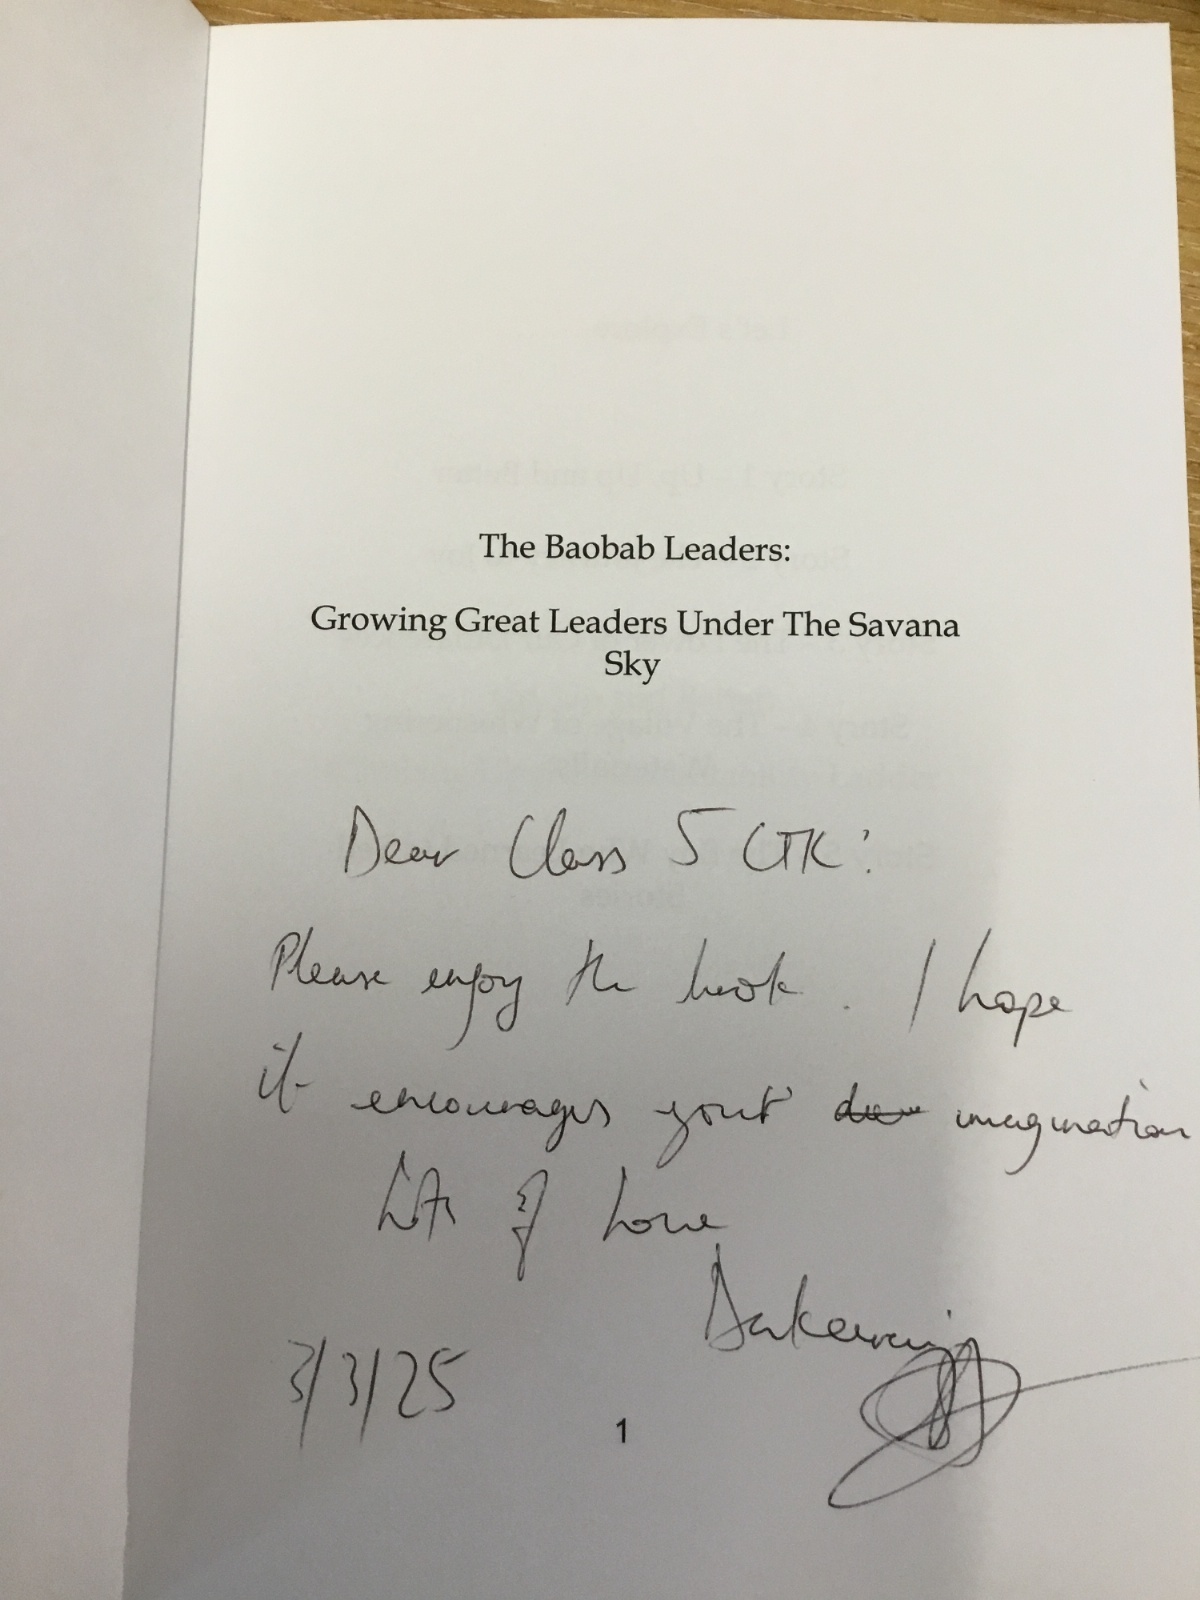 The Baobab Leaders:
Growing Great Leaders Under The Savana
Sky
Dear Class 5 CTK:
Please enjoy the book. I hope
it encourages your imagination
Lots of Love
3/3/25
1